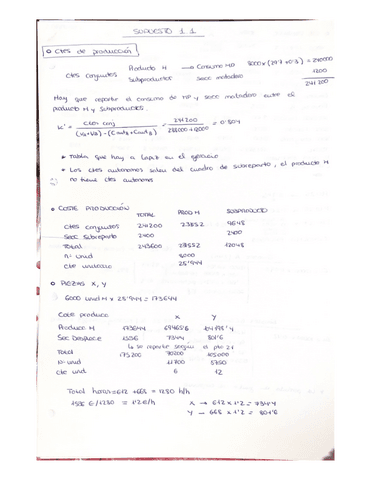 SUPUESTO 1.1
Ctes de producción
Ctes conjuntos
Producto M → Consumo MP
Subproductos secc matadero
= 240000
1200
241200
Hay que repartir el consumo de MP y secc matadero entre el
producto M y Subproductos
K' = Ctes conj = 241200 = 0'804
Tabla que hay a lapiz en el ejercicio
Los ctes autonomos salen del cuadro de subreparto, el producto M
no tiene ctes autonomos
COSTE PRODUCCIÓN
TOTAL PROD M SUBPRODUCTO
Ctes conjuntos 241200
Secc Subreparto 2400 2400
Total 243600 12048
nº unid 8000
Cte unitario 28'944
PIEZAS X, Y
6000 unid M x 28'944 = 173644
Coste produce X Y
Produce M 173644
Secc Despiece 1536 734'4 801'6
se reparte según el pto 21
Total 175200 70200 105000
nº unid 11700 8750
Cte unid 6 12
Total horas = 612 + 668 = 1280 h/h
1536 € / 1280 = 1'2 €/h
X → 612 x 1'2 = 734'4
Y → 668 x 1'2 = 801'6